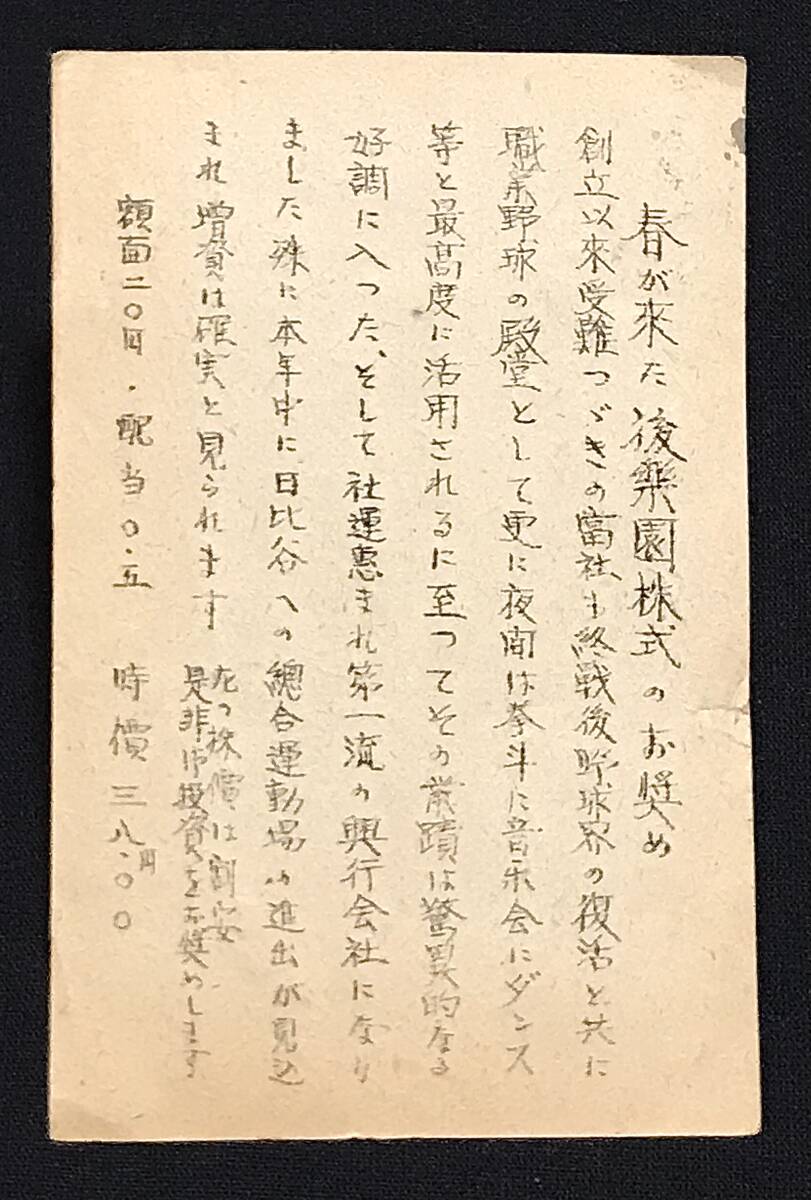 春が來た後樂園株式のお奬め
創立以來受難つゞきの當社も終戦後野球界の復活と共に
職業野球の殿堂として更に夜間は拳斗に音楽会にダンス
等と最高度に活用されるに至つてその業蹟は驚異的なる
好調に入つた、そして社運惠まれ第一流の興行会社になり
ました殊に本年中に日比谷への總合運動場の進出が見込
まれ増資は確実と見られます
在の株價は割安
是非御投資をお奬めします
額面二〇円・配当〇・五
時價三八円〇〇